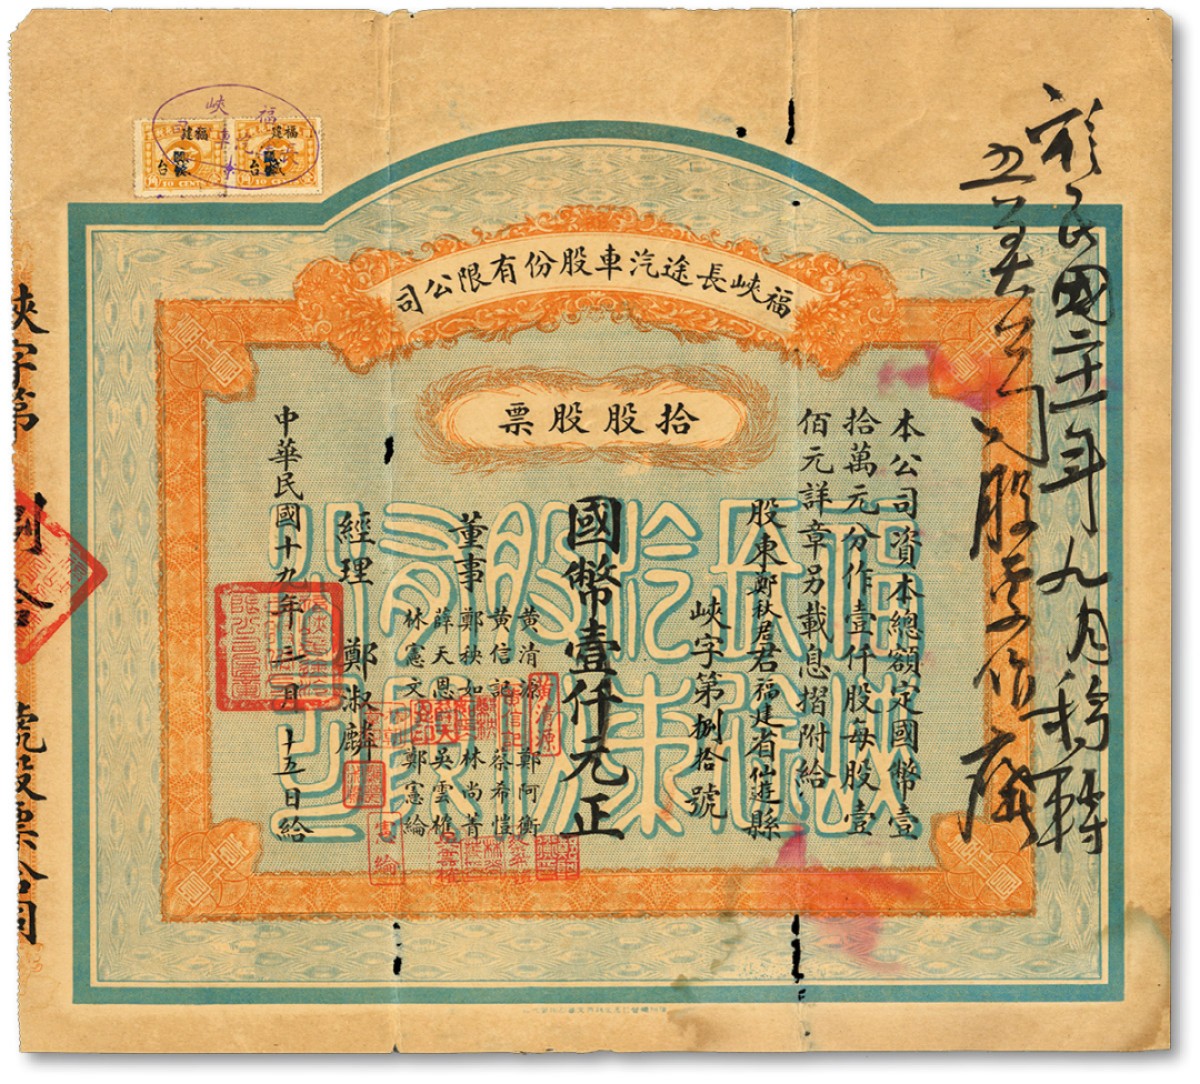 福峽長途汽車股份有限公司
拾股股票
本公司資本總額定國幣壹
拾萬元分作壹仟股每股壹
佰元詳章另載息摺附給
股東鄭秋君君福建省仙遊縣
峽字第捌拾號
國幣壹仟元正
董事
黃清源 鄭阿衡
黃信記 蔡希愷
鄭秧如 林尚菁
薛天恩 吳雲權
林憲文 鄭憲綸
經理 鄭淑麟
中華民國十九年三月十五日給
民國二十一年九月移轉
股票作廢
峽字第捌拾號股票拾股
福建
福建